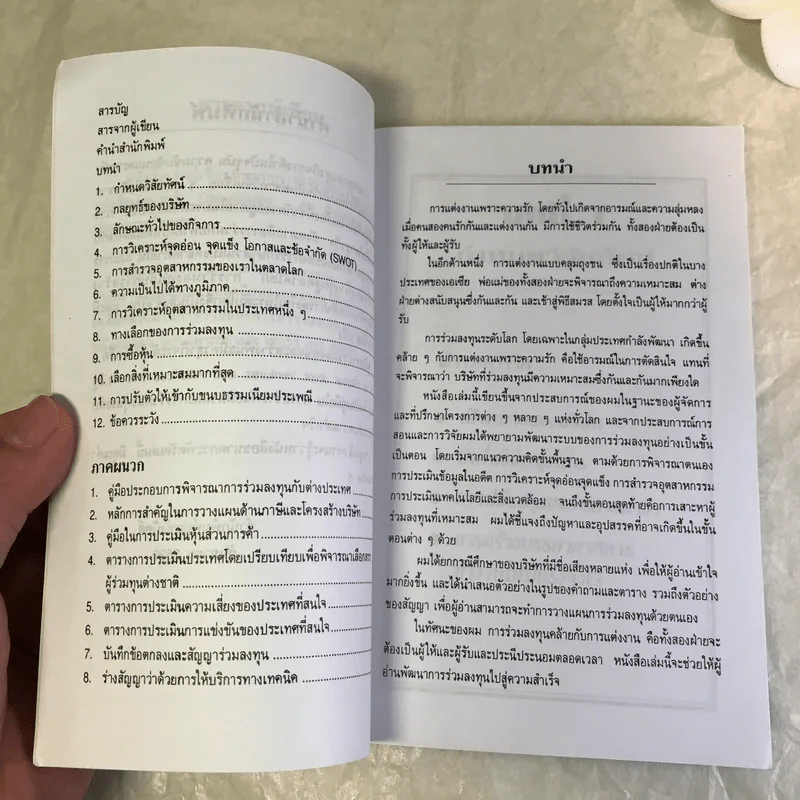 สารบัญ
สารจากผู้เขียน
คำนำสำนักพิมพ์
บทนำ
1. กำหนดวิสัยทัศน์
2. กลยุทธ์ของบริษัท
3. ลักษณะทั่วไปของกิจการ
4. การวิเคราะห์จุดอ่อน จุดแข็ง โอกาสและข้อจำกัด (SWOT)
5. การสำรวจอุตสาหกรรมของเราในตลาดโลก
6. ความเป็นไปได้ทางภูมิภาค
7. การวิเคราะห์อุตสาหกรรมในประเทศหนึ่ง ๆ
8. ทางเลือกของการร่วมลงทุน
9. การซื้อหุ้น
10. เลือกสิ่งที่เหมาะสมมากที่สุด
11. การปรับตัวให้เข้ากับขนบธรรมเนียมประเพณี
12. ข้อควรระวัง
ภาคผนวก
1. คู่มือประกอบการพิจารณาการร่วมลงทุนกับต่างประเทศ
2. หลักการสำคัญในการวางแผนด้านภาษีและโครงสร้างบริษัท
3. คู่มือในการประเมินหุ้นส่วนการค้า
4. ตารางการประเมินประเทศโดยเปรียบเทียบเพื่อพิจารณาเลือกสรร
ผู้ร่วมทุนต่างชาติ
5. ตารางการประเมินความเสี่ยงของประเทศที่สนใจ
6. ตารางการประเมินการแข่งขันของประเทศที่สนใจ
7. บันทึกข้อตกลงและสัญญาร่วมลงทุน
8. ร่างสัญญาว่าด้วยการให้บริการทางเทคนิค
บทนำ
การแต่งงานเพราะความรัก โดยทั่วไปเกิดจากอารมณ์และความลุ่มหลง
เมื่อคนสองคนรักกันและแต่งงานกัน มีการใช้ชีวิตร่วมกัน ทั้งสองฝ่ายต้องเป็น
ทั้งผู้ให้และผู้รับ
ในอีกด้านหนึ่ง การแต่งงานแบบคลุมถุงชน ซึ่งเป็นเรื่องปกติในบาง
ประเทศของเอเชีย พ่อแม่ของทั้งสองฝ่ายจะพิจารณาถึงความเหมาะสม ต่าง
ฝ่ายต่างสนับสนุนซึ่งกันและกัน และเข้าสู่พิธีสมรส โดยตั้งใจเป็นผู้ให้มากกว่าผู้
รับ
การร่วมลงทุนระดับโลก โดยเฉพาะในกลุ่มประเทศกำลังพัฒนา เกิดขึ้น
คล้าย ๆ กับการแต่งงานเพราะความรัก คือใช้อารมณ์ในการตัดสินใจ แทนที่
จะพิจารณาว่า บริษัทที่ร่วมลงทุนมีความเหมาะสมซึ่งกันและกันมากเพียงใด
หนังสือเล่มนี้เขียนขึ้นจากประสบการณ์ของผมในฐานะของผู้จัดการ
และที่ปรึกษาโครงการต่าง ๆ หลาย ๆ แห่งทั่วโลก และจากประสบการณ์การ
สอนและการวิจัยผมได้พยายามพัฒนาระบบของการร่วมลงทุนอย่างเป็นขั้น
เป็นตอน โดยเริ่มจากแนวความคิดขั้นพื้นฐาน ตามด้วยการพิจารณาตนเอง
การประเมินข้อมูลในอดีต การวิเคราะห์จุดอ่อนจุดแข็ง การสำรวจอุตสาหกรรม
การประเมินเทคโนโลยีและสิ่งแวดล้อม จนถึงขั้นตอนสุดท้ายคือการเสาะหาผู้
ร่วมลงทุนที่เหมาะสม ผมได้ชี้แจงถึงปัญหาและอุปสรรคที่อาจเกิดขึ้นในขั้น
ตอนต่าง ๆ ด้วย
ผมได้ยกกรณีศึกษาของบริษัทที่มีชื่อเสียงหลายแห่ง เพื่อให้ผู้อ่านเข้าใจ
มากยิ่งขึ้น และได้นำเสนอตัวอย่างในรูปของคำถามและตาราง รวมถึงตัวอย่าง
ของสัญญา เพื่อผู้อ่านสามารถจะทำการวางแผนการร่วมลงทุนด้วยตนเอง
ในทัศนะของผม การร่วมลงทุนคล้ายกับการแต่งงาน คือทั้งสองฝ่ายจะ
ต้องเป็นผู้ให้และผู้รับและประนีประนอมตลอดเวลา หนังสือเล่มนี้จะช่วยให้ผู้
อ่านพัฒนาการร่วมลงทุนไปสู่ความสำเร็จ